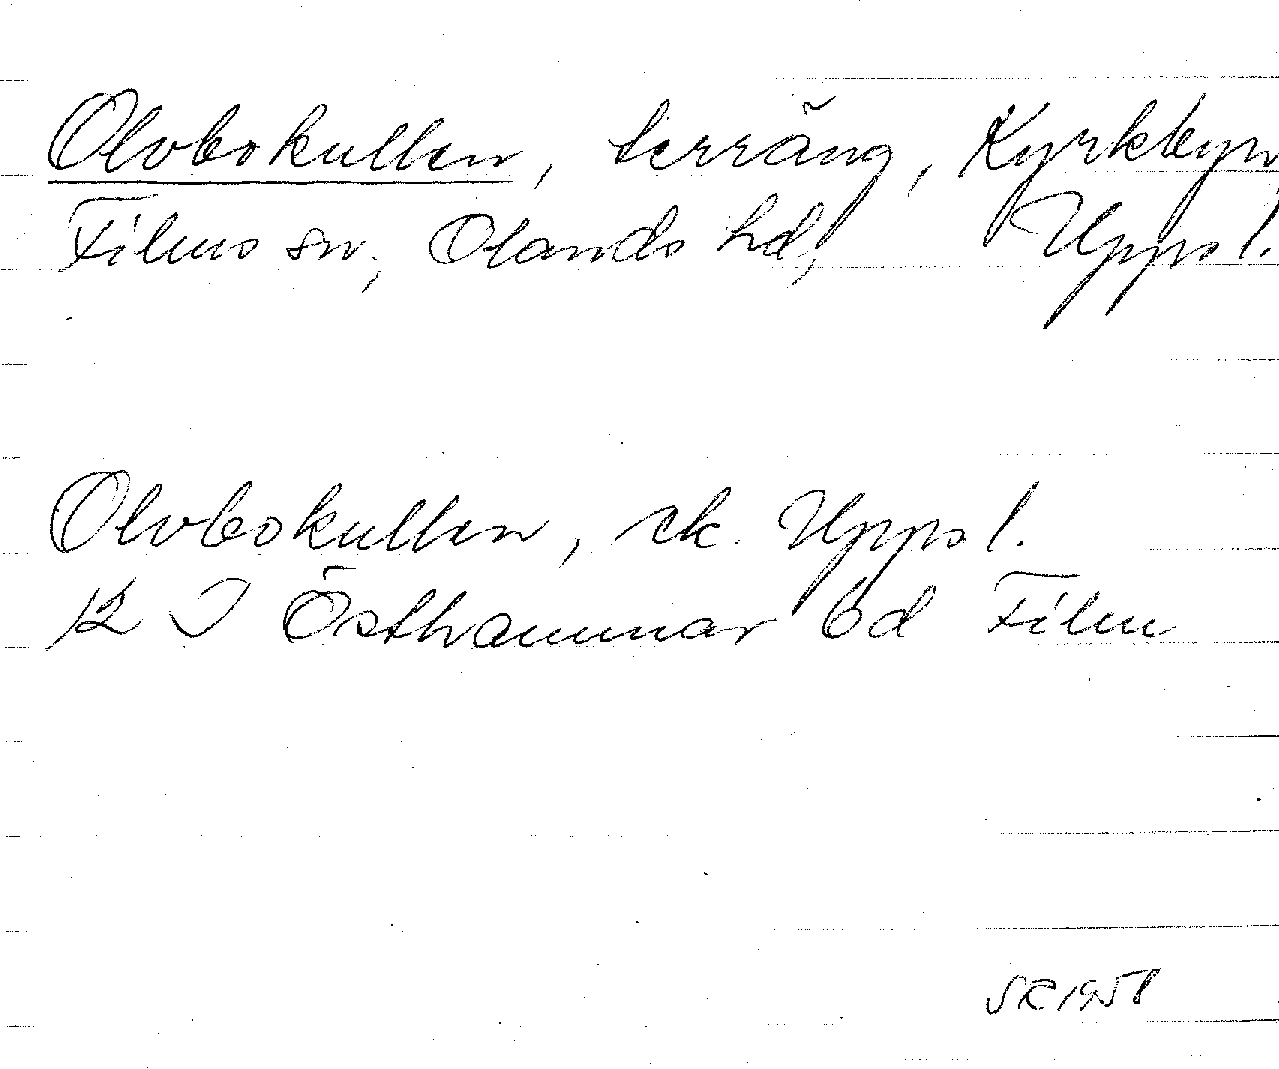 Olvbokullen, terräng, Kyrkbyn,
Films sn, Olands hd, Uppsl.
Olvbokullen, ek. Uppsl.
12 I Östhammar 6d Film
SR 1958